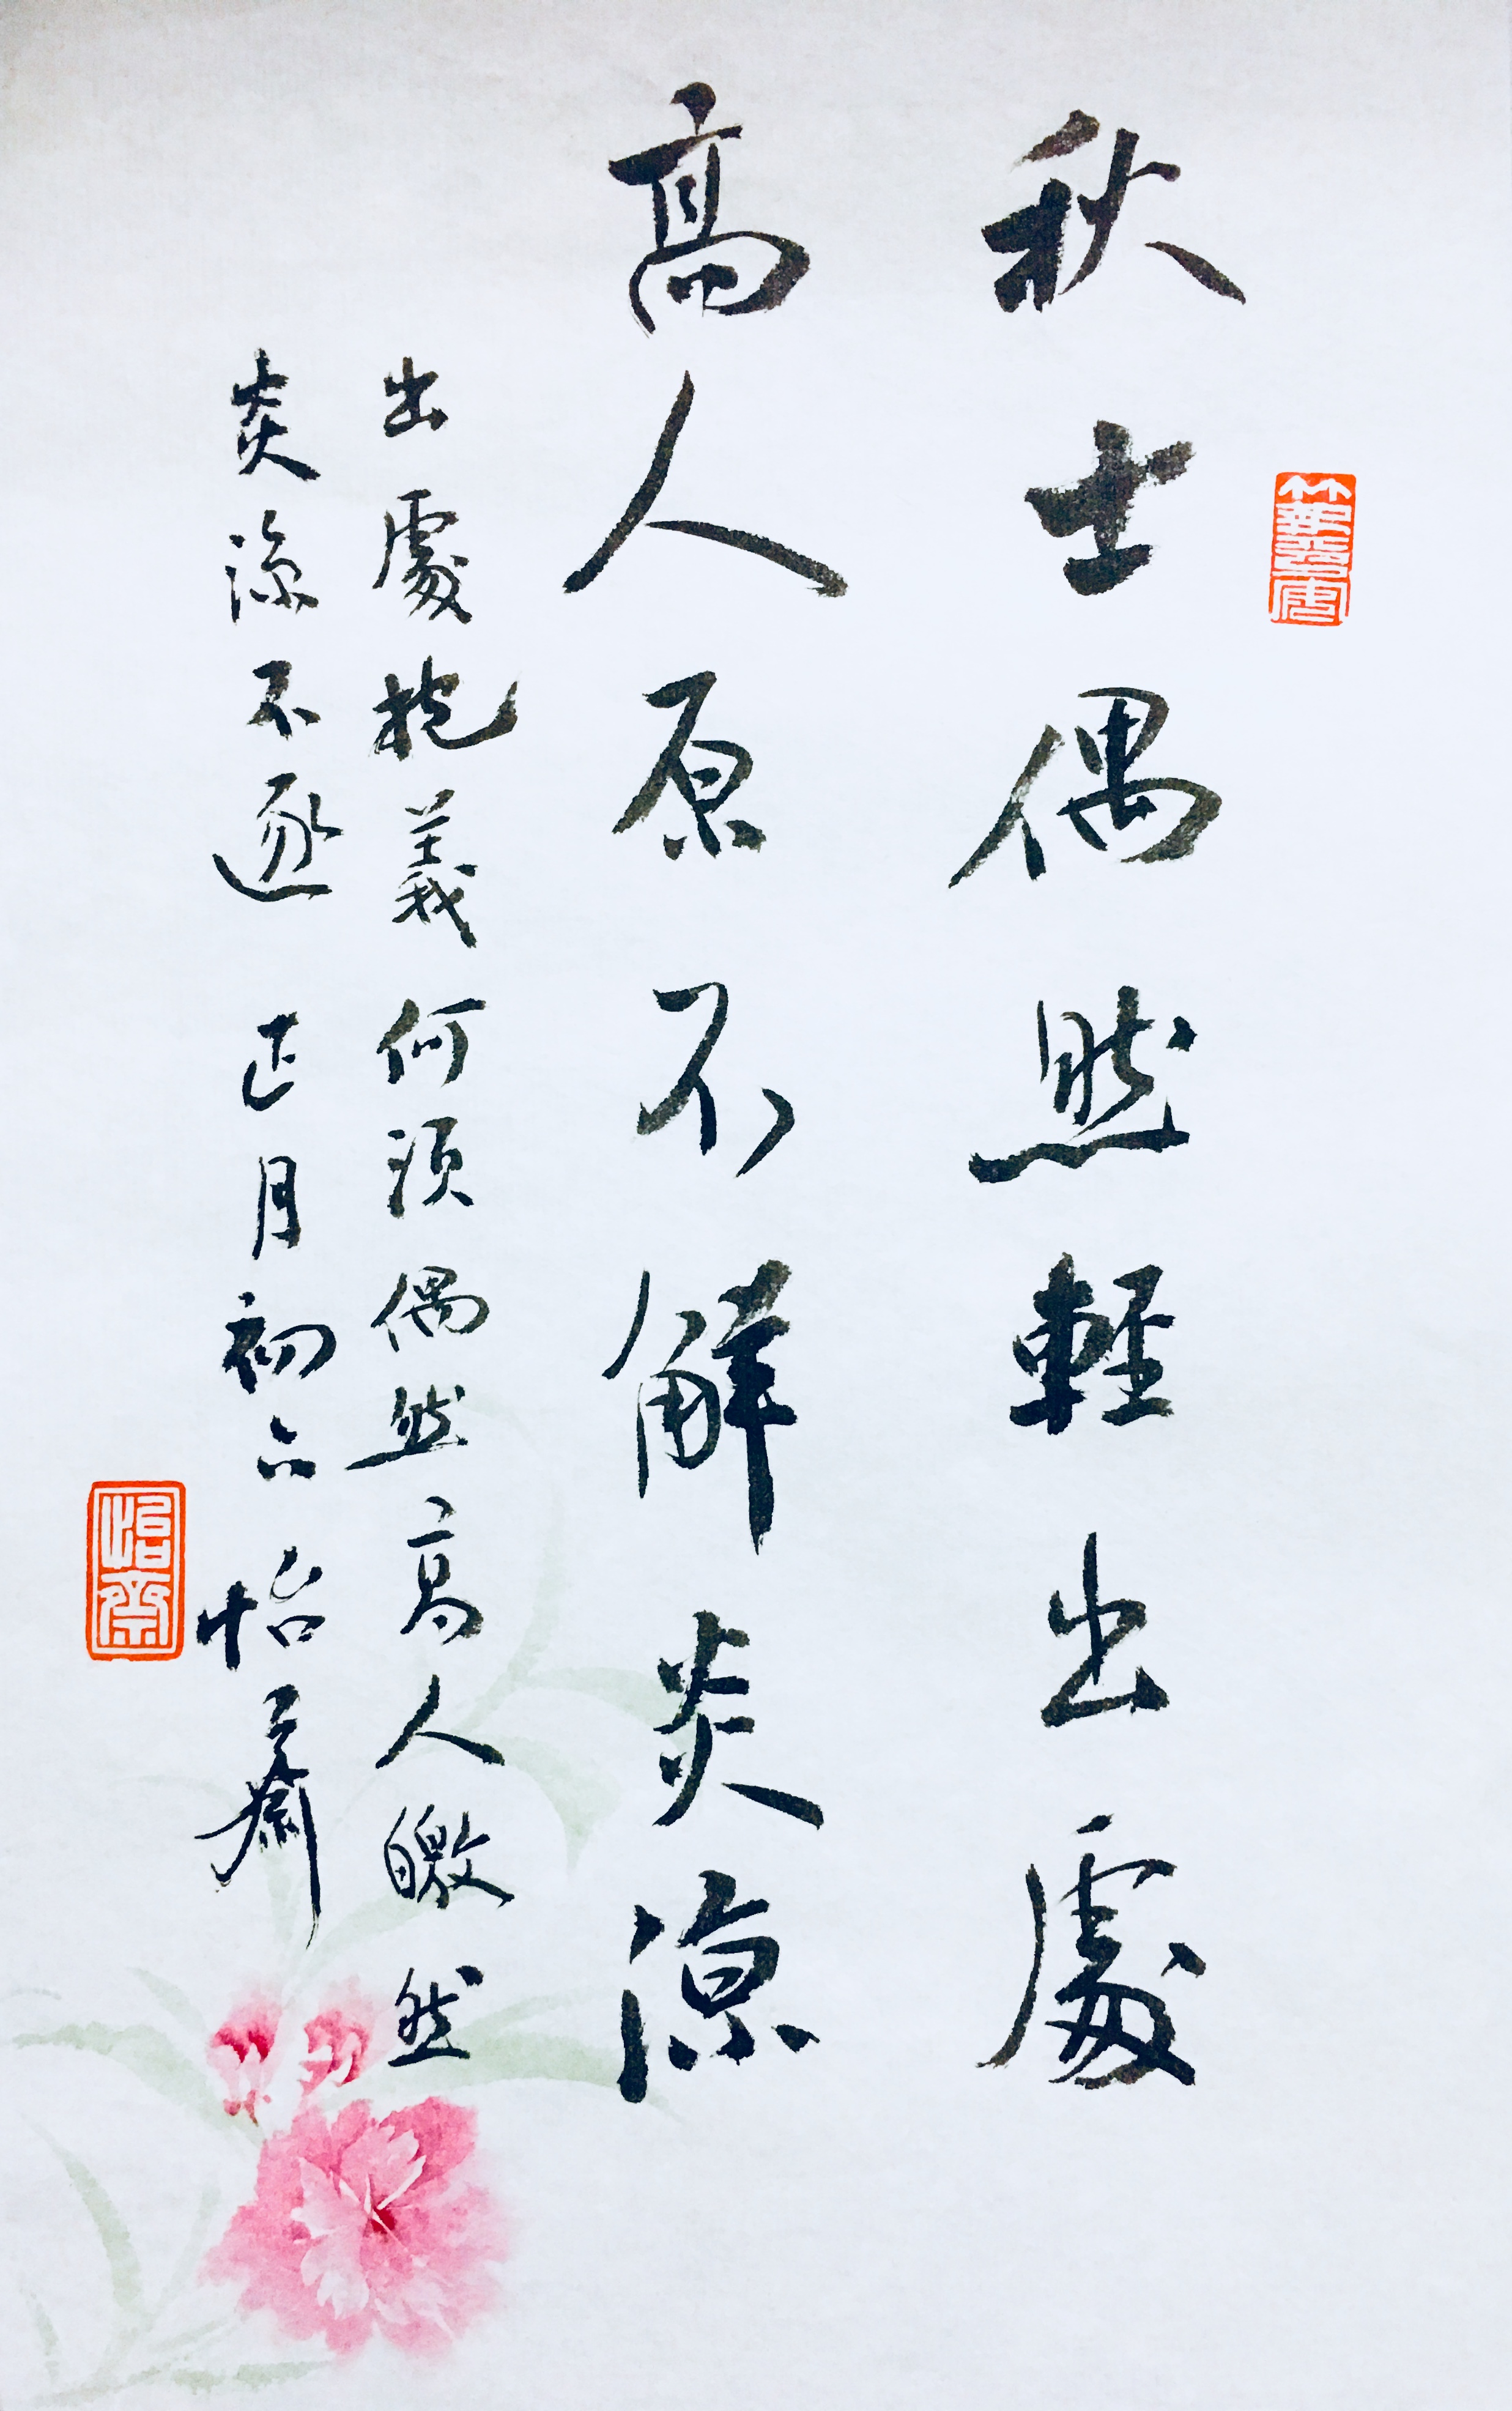 秋士偶然輕出處
高人原不解炎涼
出處抱義何須偶然高人皦然
炎涼不逐 正月初六 怡齋
怡齋